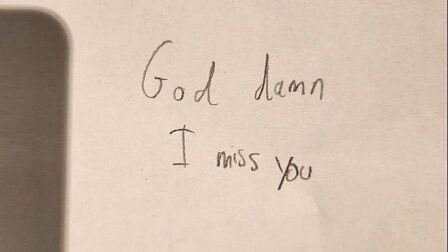 God damn
I miss you